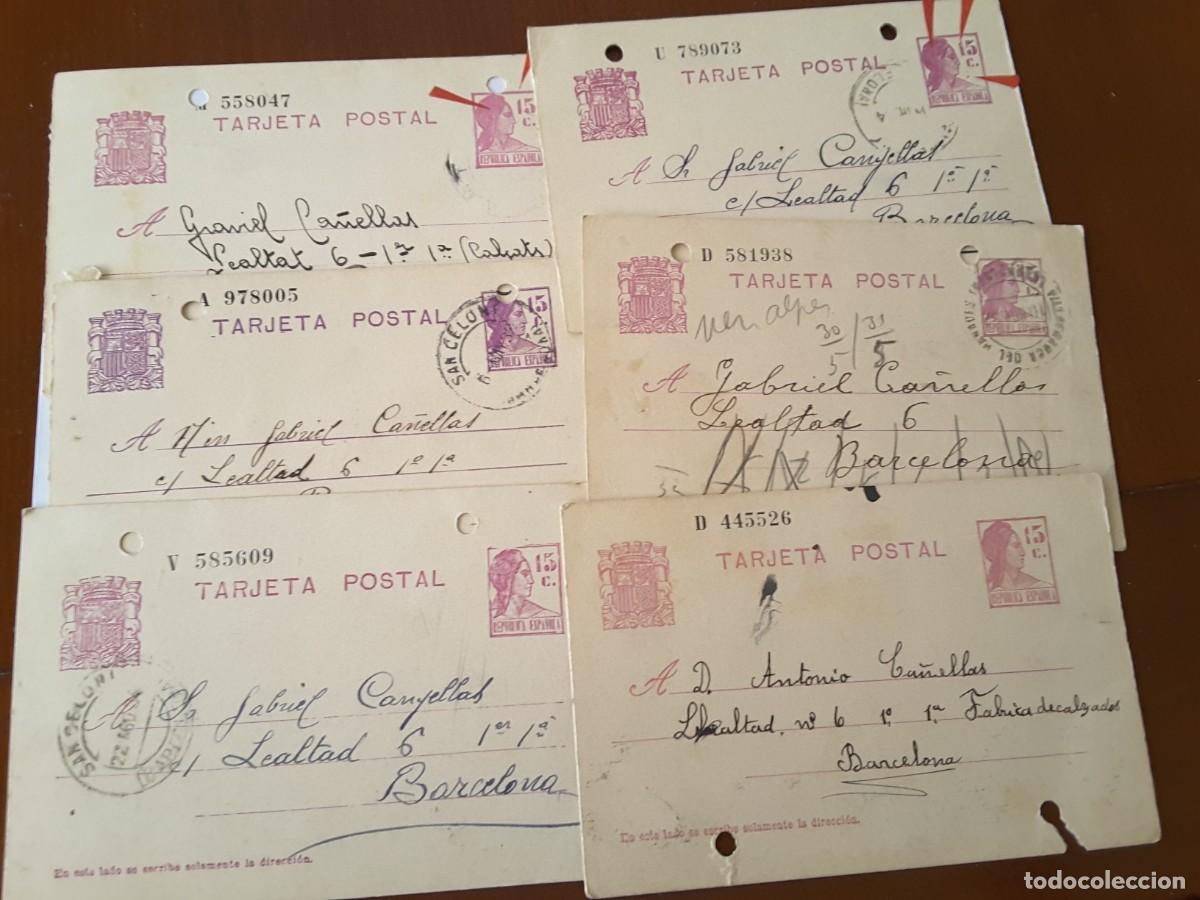 M 558047
TARJETA POSTAL
15
C.
REPUBLICA ESPAÑOLA
A Graviel Cañellas
Lealtat 6 - 1er 1a (Calçats)
U 789073
TARJETA POSTAL
15
C.
REPUBLICA ESPAÑOLA
A Sr Gabriel Canyellas
c/ Lealtad 6 1er 1a
Barcelona
A 978005
TARJETA POSTAL
15
C.
REPUBLICA ESPAÑOLA
SAN CELONI
A Gabriel Cañellas
c/ Lealtad 6 1o 1a
D 581938
TARJETA POSTAL
VILAFRANCA DEL PANADES
30/5 / 31/5
A Gabriel Cañellas
Lealtad 6
Barcelona
V 585609
TARJETA POSTAL
15
C.
REPUBLICA ESPAÑOLA
SAN CELONI
22
A Sr Gabriel Canyellas
c/ Lealtad 6 1er 1a
Barcelona
En este lado se escribe solamente la dirección.
D 445526
TARJETA POSTAL
15
C.
REPUBLICA ESPAÑOLA
A D. Antonio Cañellas
Lealtad, nº 6 1o 1a Fabrica de calzados
Barcelona
En este lado se escribe solamente la dirección.
todocoleccion